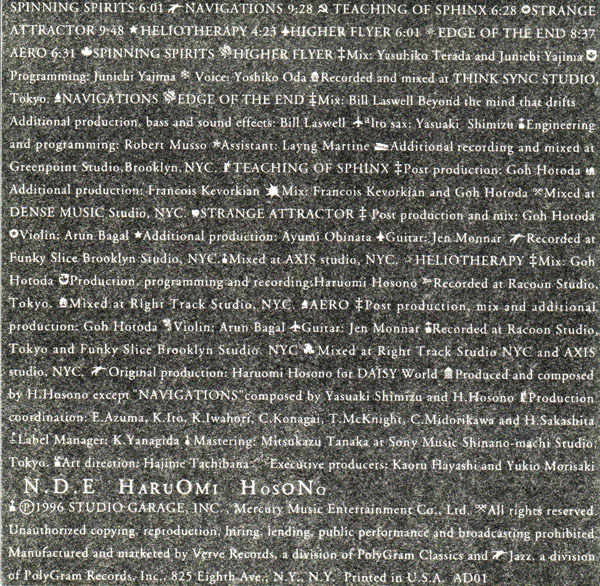 SPINNING SPIRITS 6:01 NAVIGATIONS 9:28 TEACHING OF SPHINX 6:28 STRANGE
ATTRACTOR 9:48 HELIOTHERAPY 4:23 HIGHER FLYER 6:01 EDGE OF THE END 8:37
AERO 6:31 SPINNING SPIRITS HIGHER FLYER ‡Mix: Yasuhiko Terada and Junichi Yajima
Programming: Junichi Yajima Voice: Yoshiko Oda Recorded and mixed at THINK SYNC STUDIO,
Tokyo. NAVIGATIONS EDGE OF THE END ‡Mix: Bill Laswell Beyond the mind that drifts
Additional production, bass and sound effects: Bill Laswell alto sax: Yasuaki Shimizu Engineering
and programming: Robert Musso Assistant: Layng Martine Additional recording and mixed at
Greenpoint Studio,Brooklyn, NYC. TEACHING OF SPHINX ‡Post production: Goh Hotoda
Additional production: Francois Kevorkian Mix: Francois Kevorkian and Goh Hotoda Mixed at
DENSE MUSIC Studio, NYC. STRANGE ATTRACTOR ‡ Post production and mix: Goh Hotoda
Violin: Arun Bagal Additional production: Ayumi Obinata Guitar: Jen Monnar Recorded at
Funky Slice Brooklyn Studio, NYC. Mixed at AXIS studio, NYC. HELIOTHERAPY ‡Mix: Goh
Hotoda Production, programming and recording:Haruomi Hosono Recorded at Racoon Studio,
Tokyo. Mixed at Right Track Studio, NYC. AERO ‡Post production, mix and additional
production: Goh Hotoda Violin: Arun Bagal Guitar: Jen Monnar Recorded at Racoon Studio,
Tokyo and Funky Slice Brooklyn Studio. NYC Mixed at Right Track Studio NYC and AXIS
studio, NYC. Original production: Haruomi Hosono for DAISY World Produced and composed
by H.Hosono except "NAVIGATIONS"composed by Yasuaki Shimizu and H.Hosono Production
coordination: E.Azuma, K.Ito, K.Iwahori, C.Konagai, T.McKnight, C.Midorikawa and H.Sakashita
Label Manager: K.Yanagida Mastering: Mitsukazu Tanaka at Sony Music Shinano-machi Studio,
Tokyo. Art direction: Hajime Tachibana Executive producers: Kaoru Hayashi and Yukio Morisaki
N.D.E HARUOMI HOSONO
℗1996 STUDIO GARAGE, INC., Mercury Music Entertainment Co., Ltd. All rights reserved.
Unauthorized copying, reproduction, hiring, lending, public performance and broadcasting prohibited.
Manufactured and marketed by Verve Records, a division of PolyGram Classics and Jazz, a division
of PolyGram Records, Inc., 825 Eighth Ave., N.Y., N.Y. Printed in U.S.A. AD01